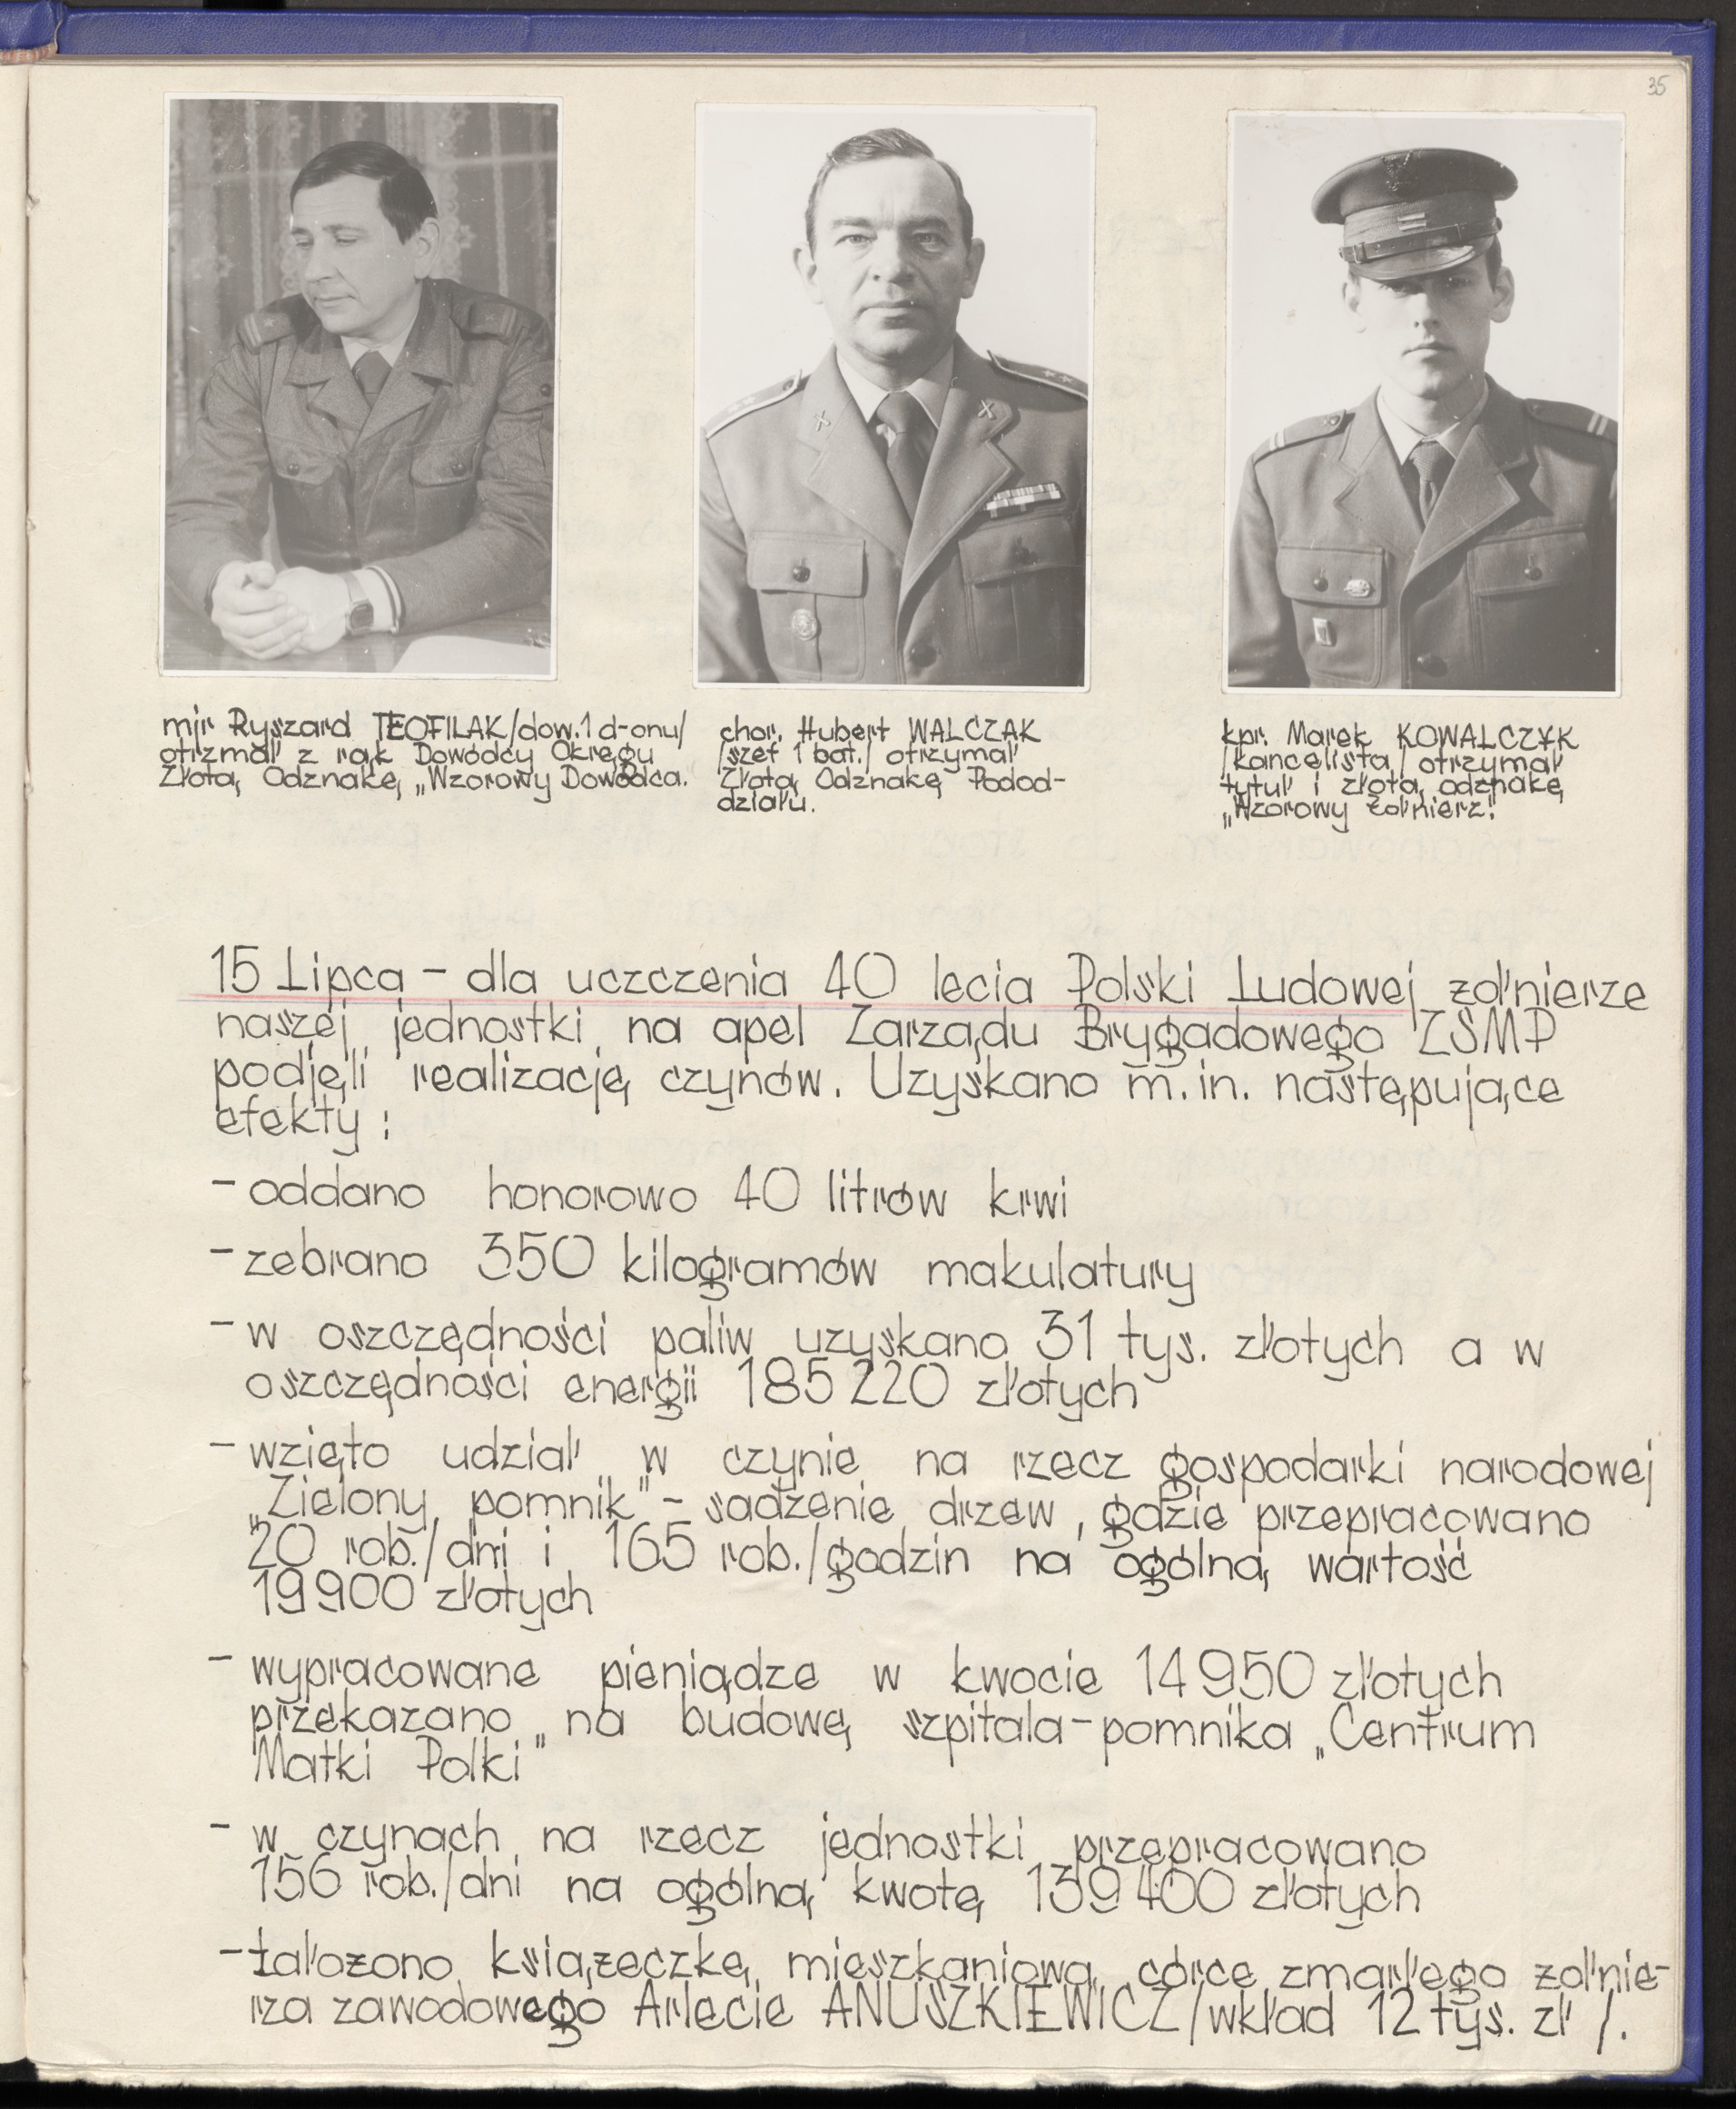 35
mjr Ryszard TEOFILAK/dow. 1 d-onu/
otrzmał z rąk Dowódcy Okręgu
Złotą Odznakę „Wzorowy Dowódca.
chor. Hubert WALCZAK
/szef 1 bat./ otrzymał
Złotą Odznakę Podod-
działu.
kpr. Marek KOWALCZYK
/kancelista/ otrzymał
tytuł i złotą odznakę
„Wzorowy Żołnierz".
15 Lipca - dla uczczenia 40 lecia Polski Ludowej żołnierze
naszej jednostki na apel Zarządu Brygadowego ZSMP
podjęli realizację czynów. Uzyskano m.in. następujące
efekty :
- oddano honorowo 40 litrów krwi
- zebrano 350 kilogramów makulatury
- w oszczędności paliw uzyskano 31 tys. złotych a w
oszczędności energii 185 220 złotych
- wzięto udział w czynie na rzecz gospodarki narodowej
„Zielony pomnik" - sadzenie drzew , gdzie przepracowano
20 rob./dni i 165 rob./godzin na ogólną wartość
19 900 złotych
- wypracowane pieniądze w kwocie 14 950 złotych
przekazano na budowę szpitala-pomnika „Centrum
Matki Polki"
- w czynach na rzecz jednostki przepracowano
156 rob./dni na ogólną kwotę 139 400 złotych
- załozono książeczkę mieszkaniową córce zmarłego żołnie-
rza zawodowego Arlecie ANUSZKIEWICZ /wkład 12 tys. zł /.